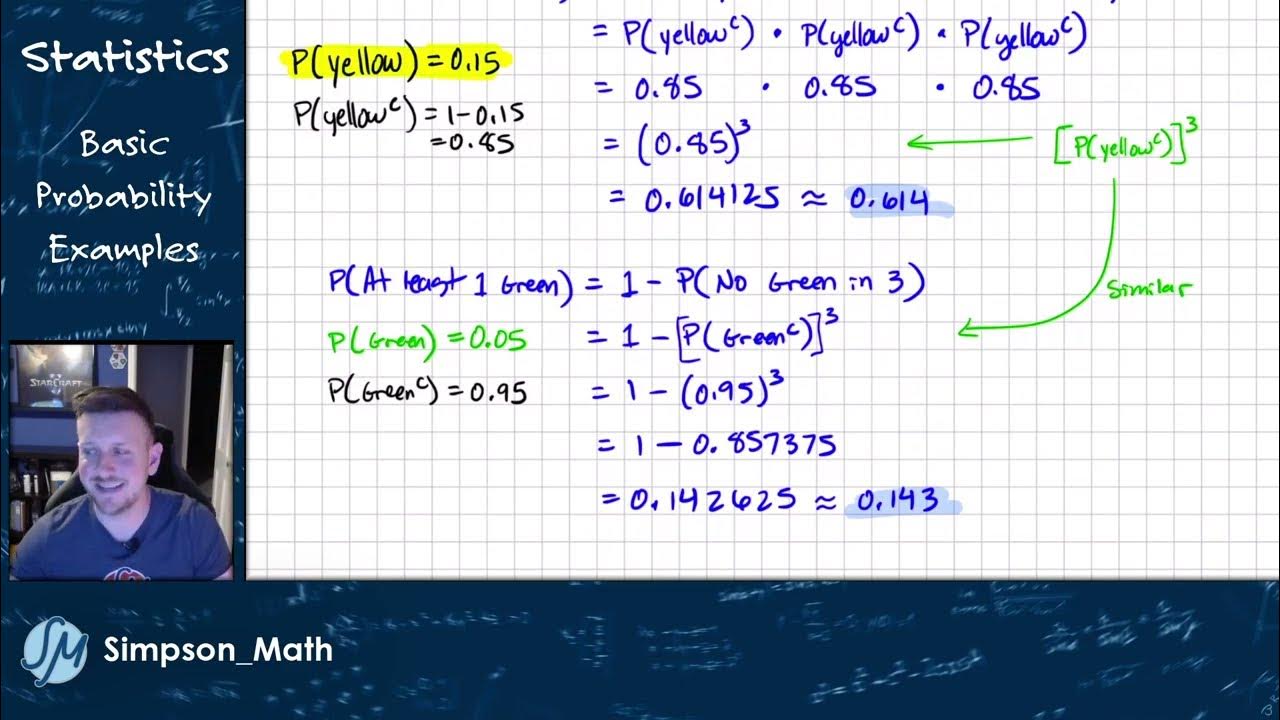 Statistics
Basic
Probability
Examples
= P(yellowᶜ) • P(yellowᶜ) • P(yellowᶜ)
P(yellow) = 0.15
= 0.85 • 0.85 • 0.85
P(yellowᶜ) = 1 - 0.15
= 0.85
= (0.85)³
[P(yellowᶜ)]³
= 0.614125 ≈ 0.614
P(At least 1 Green) = 1 - P(No Green in 3)
Similar
P(Green) = 0.05
= 1 - [P(Greenᶜ)]³
P(Greenᶜ) = 0.95
= 1 - (0.95)³
= 1 - 0.857375
= 0.142625 ≈ 0.143
STARCRAFT
SM
Simpson_Math